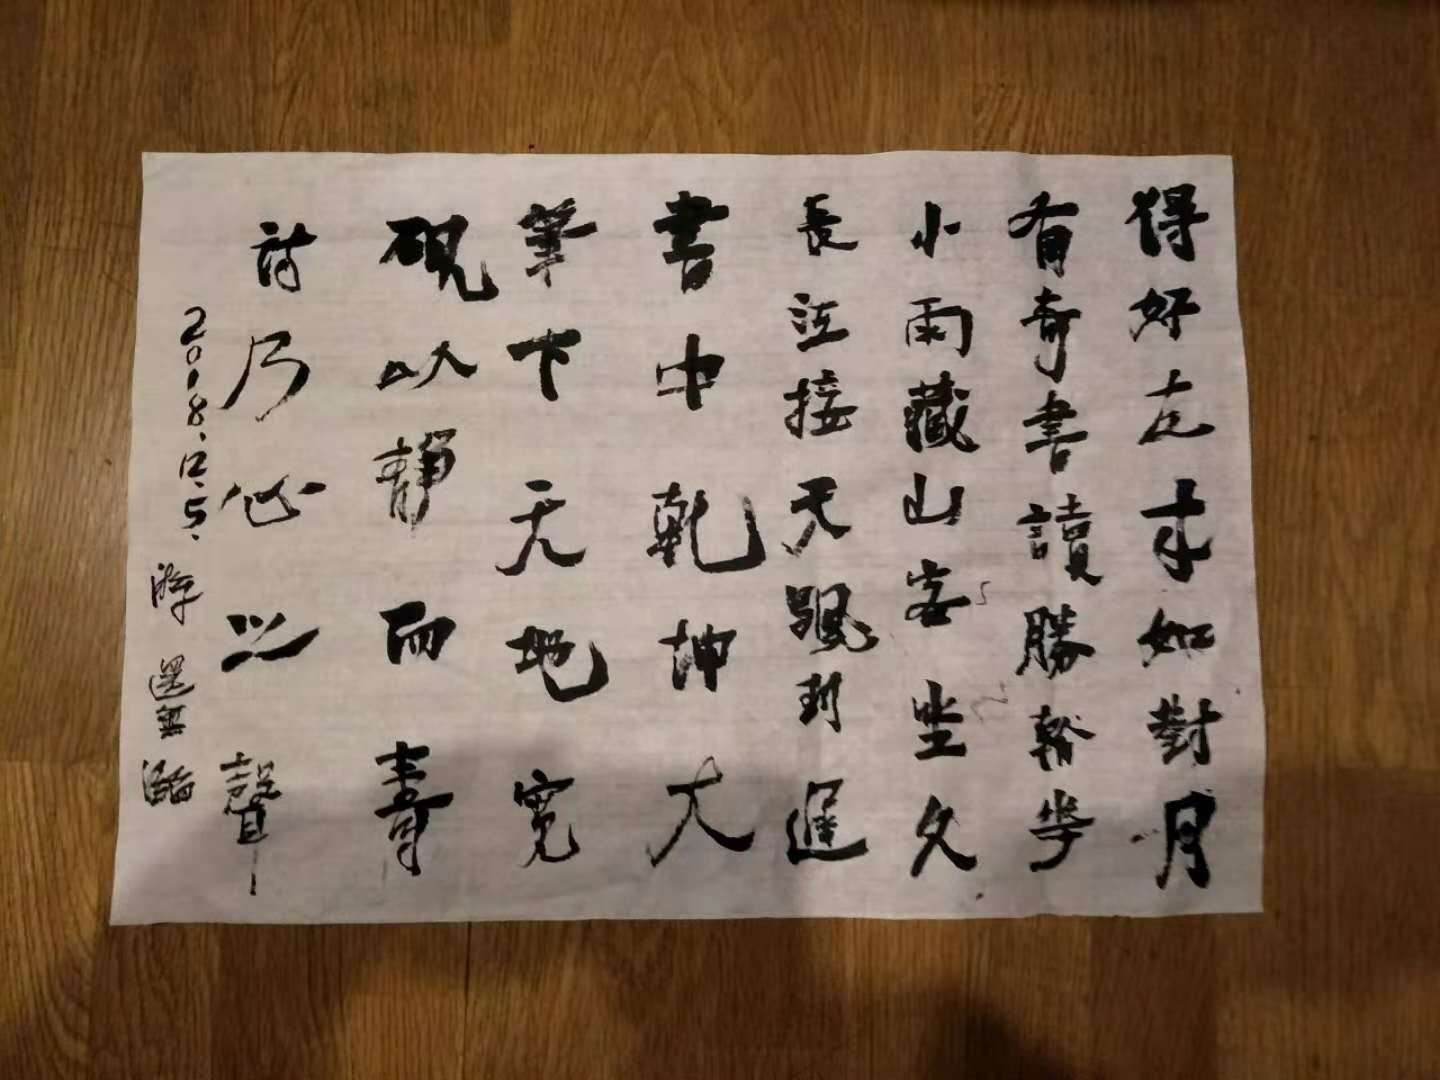 得好友来如對月
有奇書讀勝看花
小雨藏山客坐久
長江接天颿到遲
書中乾坤大
筆下天地寬
硯以靜而壽
詩乃心之聲
2018.12.5.